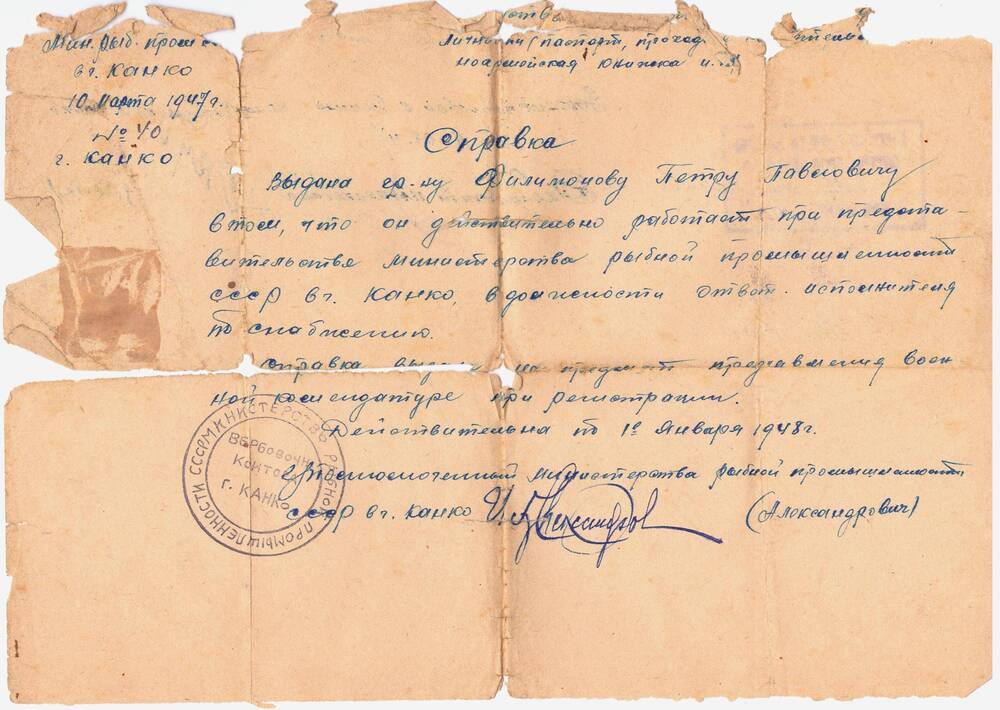 Мин. рыб. пром
в г. Канко
10 марта 1947 г.
№ 40
г. Канко
ство
личными (паспорт,
ноармейская книжка и
Справка
Выдана гр-ну Филимонову Петру Павловичу
в том, что он действительно работает при предста-
вительстве министерства рыбной промышленности
СССР в г. Канко, в должности ответ. исполнителя
по снабжению.
Справка на предмет предъявления воен
ной комендатуре при регистрации.
Действительна по 1е января 1948 г.
Уполномоченный министерства рыбной промышленности
СССР в г. Канко (Александрович)
МИНИСТЕРСТВО РЫБНОЙ ПРОМЫШЛЕННОСТИ СССР
Вербовочн
Конто
г. КАНКО